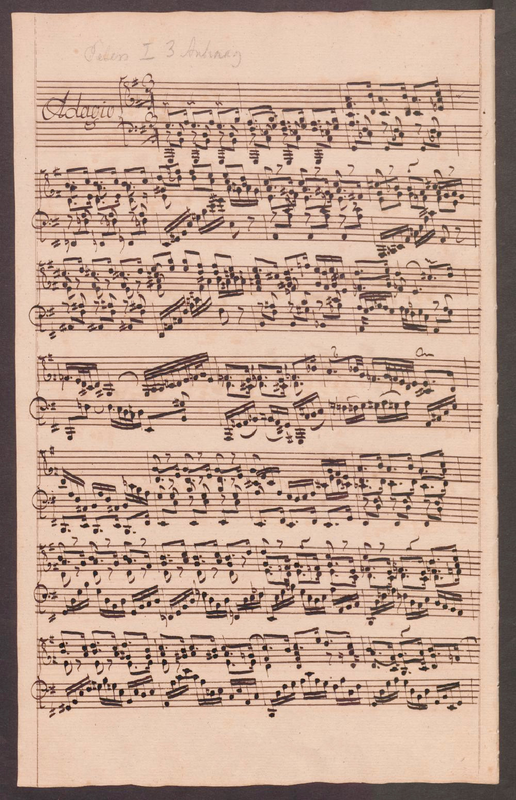 Peters I 3 Anhang
Adagio